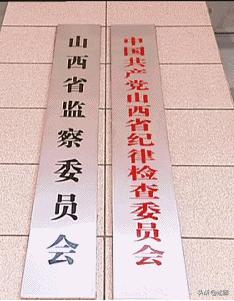 中国共产党山西省纪律检查委员会
山西省监察委员会